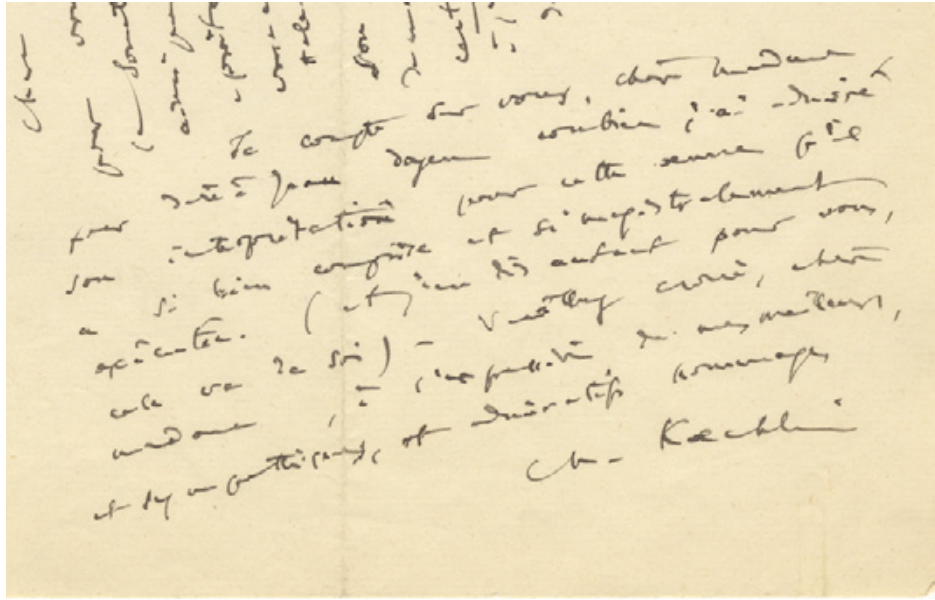 Je compte sur vous, chère madame
pour dire à Jean Doyen combien j'ai admiré
son interprétation pour cette œuvre qu'il
a si bien comprise et si magistralement
exécutée. (et j'en dis autant pour vous,
cela va de soi) – Veuillez croire, chère
madame, à l'expression de mes meilleurs,
et sympathiques, et admiratifs hommages
Ch. Kœchlin